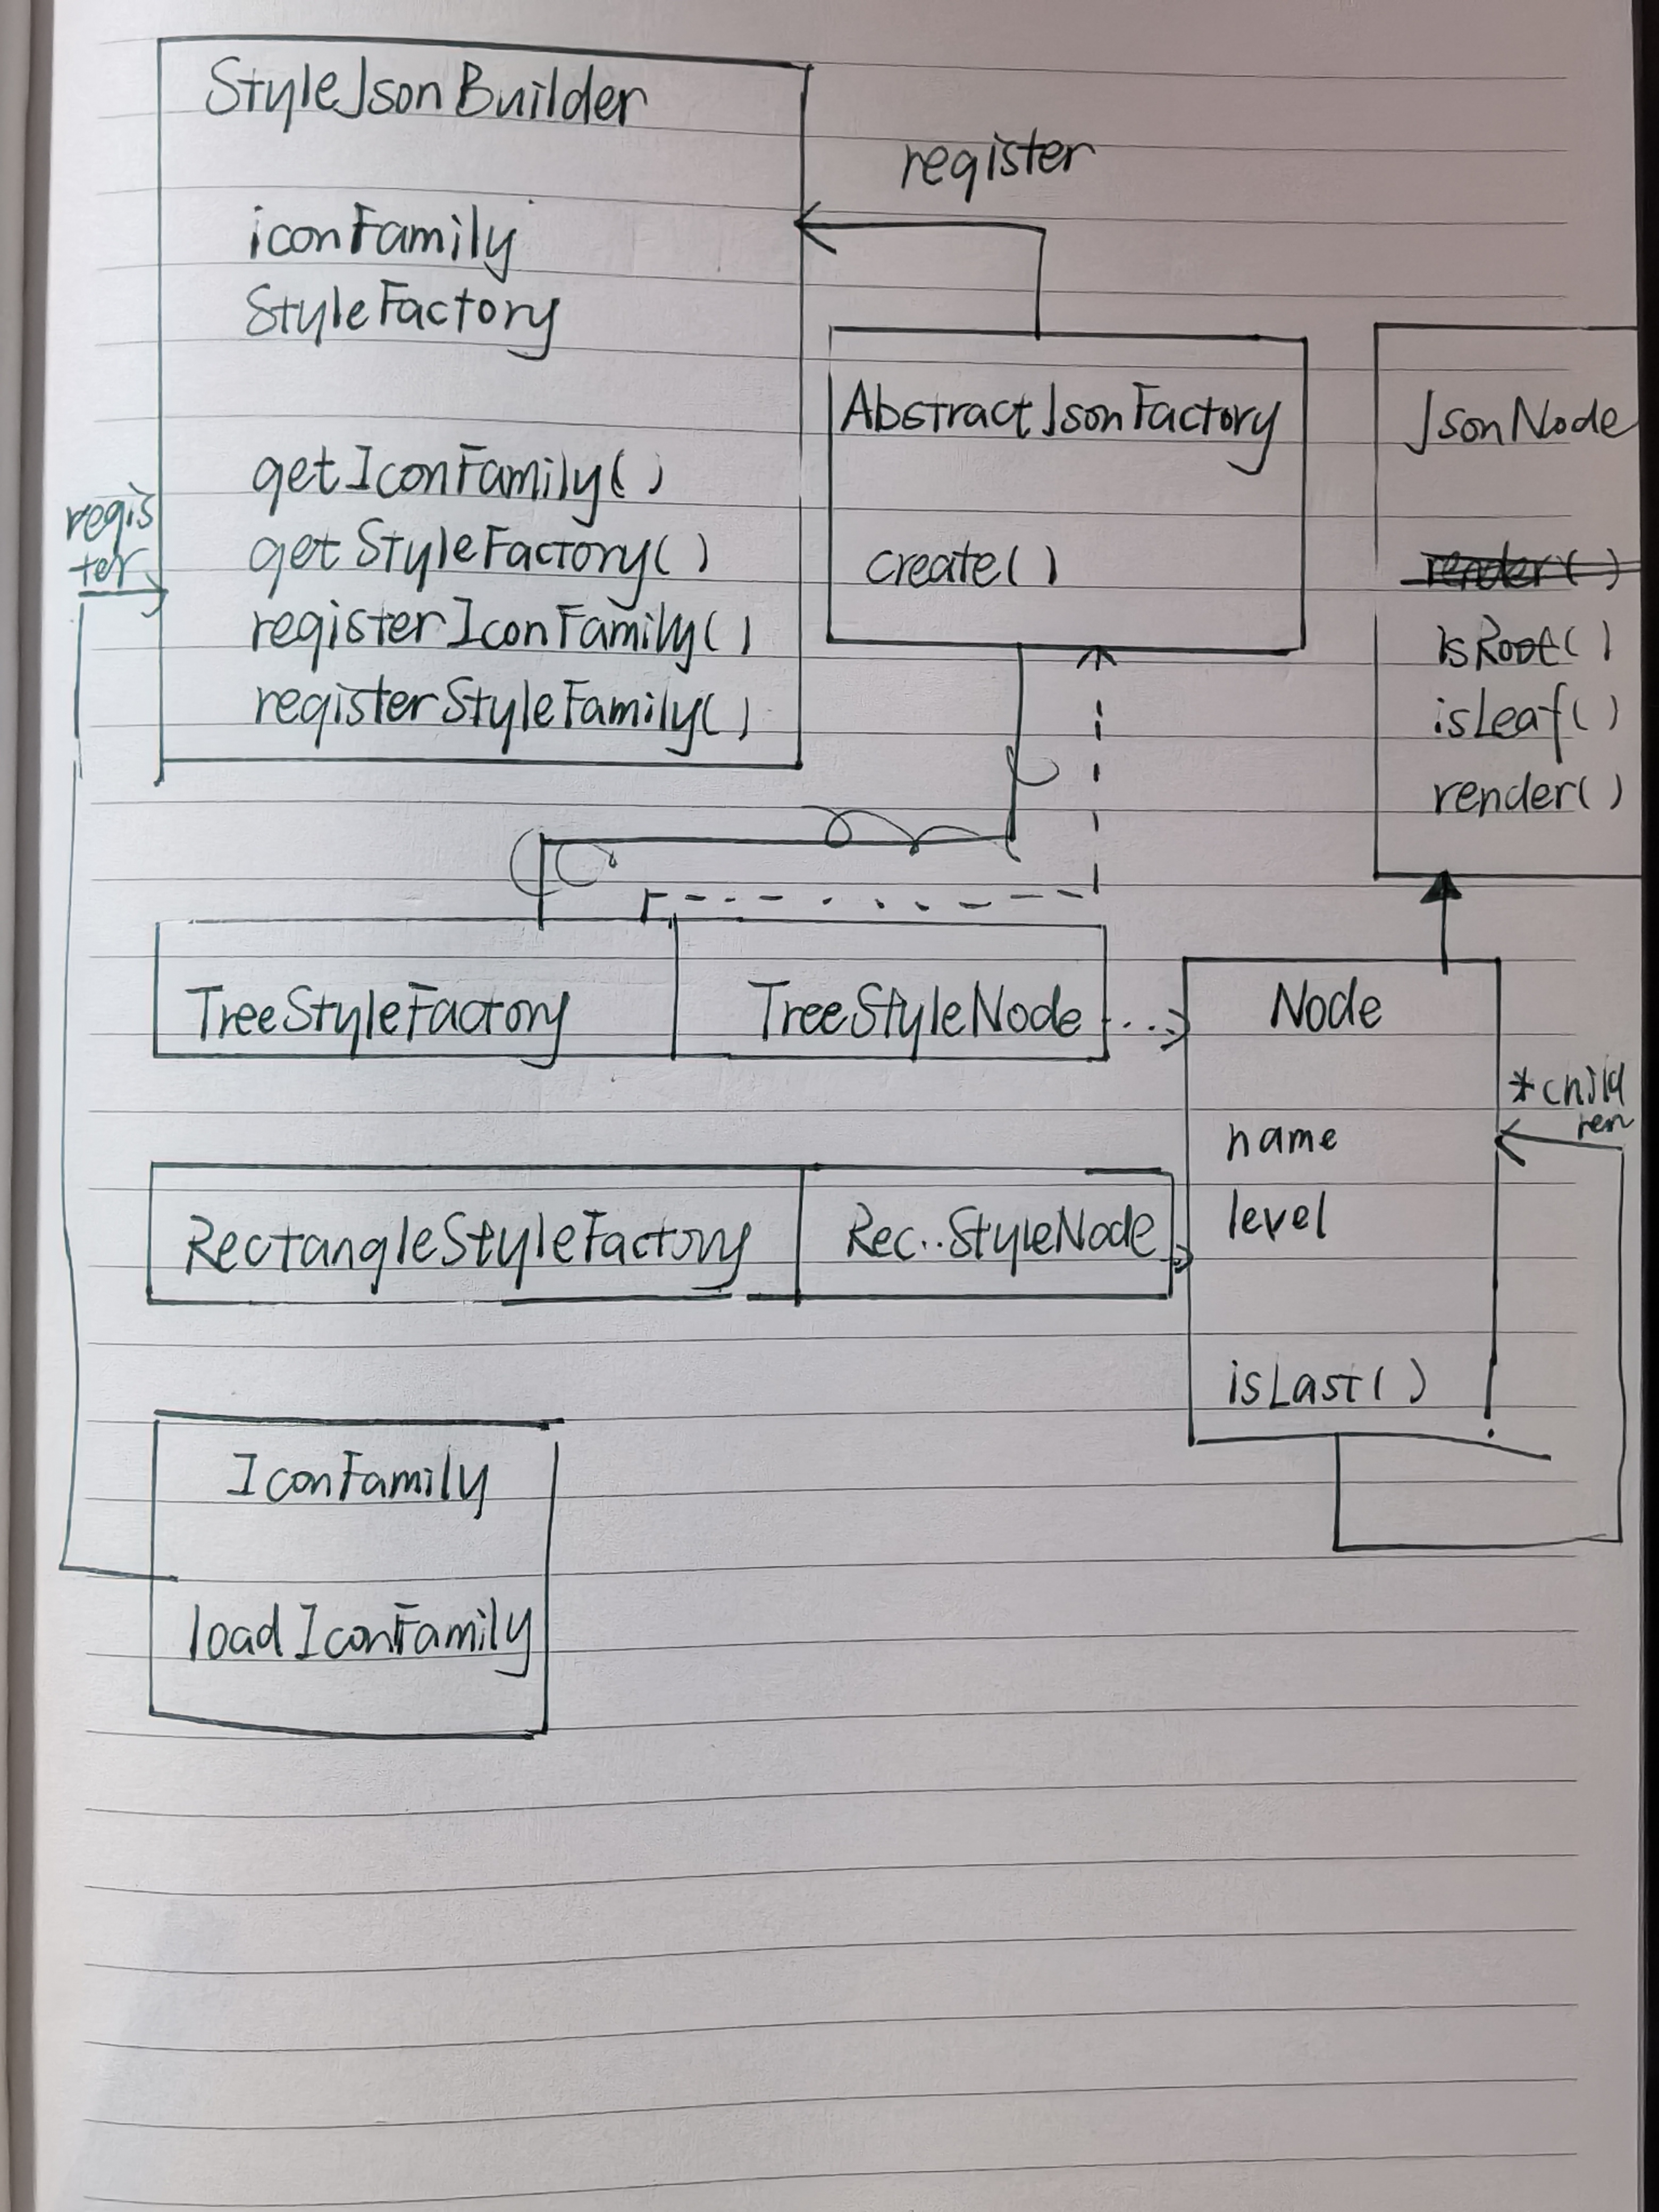 StyleJsonBuilder
iconFamily
StyleFactory
getIconFamily()
getStyleFactory()
registerIconFamily()
registerStyleFamily()
register
regis
ter
AbstractJsonFactory
create()
JsonNode
render()
isRoot()
isLeaf()
render()
TreeStyleFactory
TreeStyleNode
Node
name
level
isLast()
*child
ren
RectangleStyleFactory
Rec..StyleNode
IconFamily
loadIconFamily